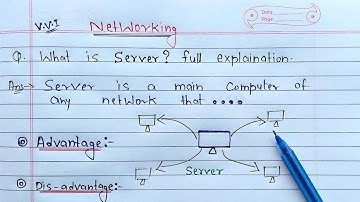 V.V.I NetWorking
Date
Page
Q. What is Server? full explaination.
Ans→ Server is a main computer of
any network that ....
Advantage:-
Server
Dis-advantage:-